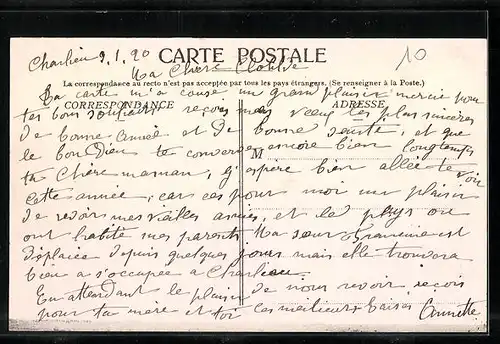 CARTE POSTALE
10
Charlieu 9.1.20
Ma Chère Clotilde
La correspondance au recto n'est pas acceptée par tous les pays étrangers. (Se renseigner à la Poste.)
CORRESPONDANCE
ADRESSE
M
Ta carte m'a causé un grand plaisir merci pour
tes bons souhaits, reçois mes vœux les plus sincères
de bonne année et de bonne santé, et que
le bon Dieu te conserve encore bien longtemps
ta chère maman, j'espère bien aller te voir
cette année, car ces pour moi un plaisir
de revoir mes vieilles amies, et le pays ou
ont habité mes parents. Ma sœur Francine est
déplacée depuis quelques jours mais elle trouvera
bien a s'occupée a Charlieu.
En attendant le plaisir de nous revoir, reçois
pour ta mère et toi les meilleurs baisers Annette